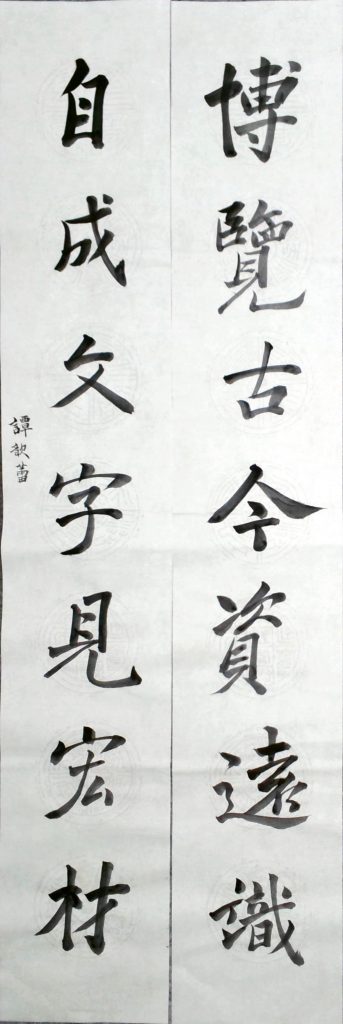 博覽古今資遠識
自成文字見宏材
譚歆蕾